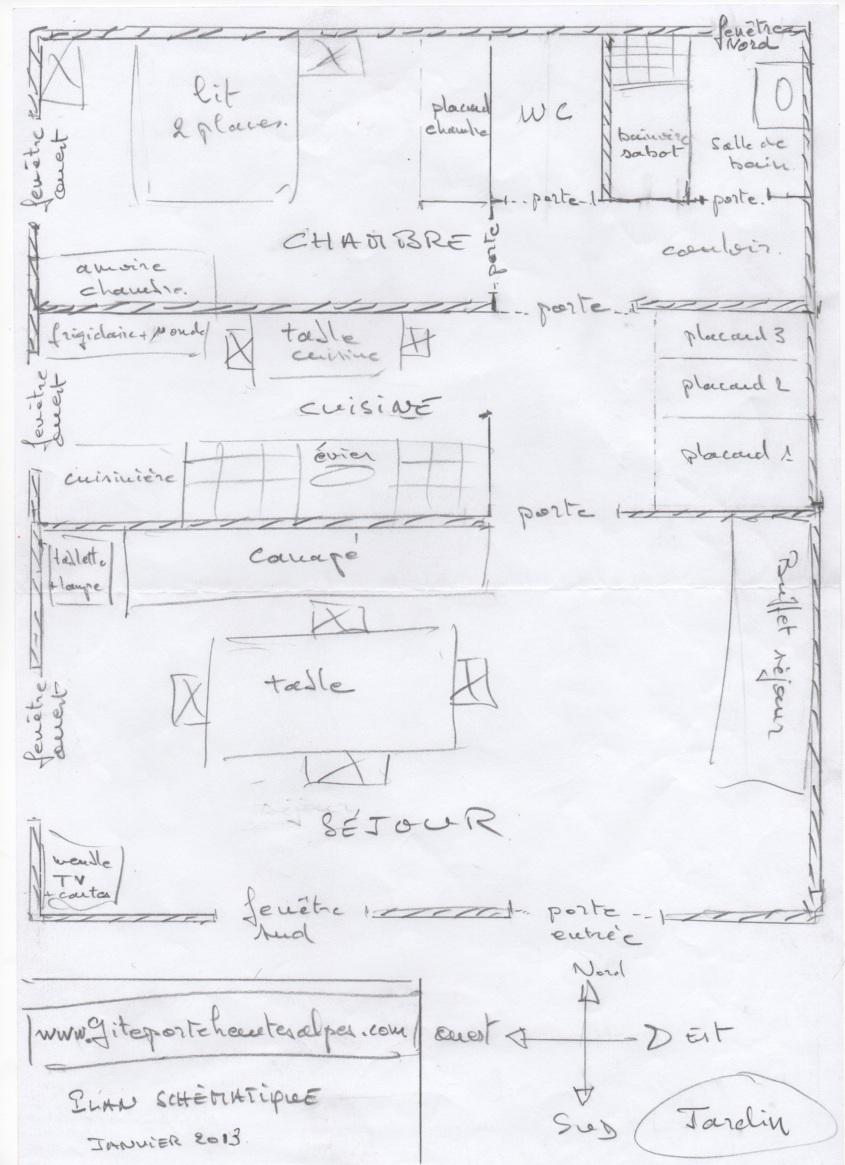 fenêtre
Nord
lit
2 places.
placard
chambre
WC
baignoire
sabot
Salle de
bain
fenêtre
ouest
porte
porte
CHAMBRE
porte
couloir
armoire
chambre
porte
frigidaire +
table
cuisine
placard 3
placard 2
placard 1
fenêtre
ouest
CUISINE
cuisinière
évier
porte
tablette
+ lampe
canapé
Buffet séjour
table
fenêtre
ouest
SÉJOUR
meuble
TV
+ cartes
fenêtre
sud
porte
entrée
Nord
www.Giteportehautesalpes.com
ouest
EST
PLAN SCHÈMATIQUE
JANVIER 2013
SUD
Jardin